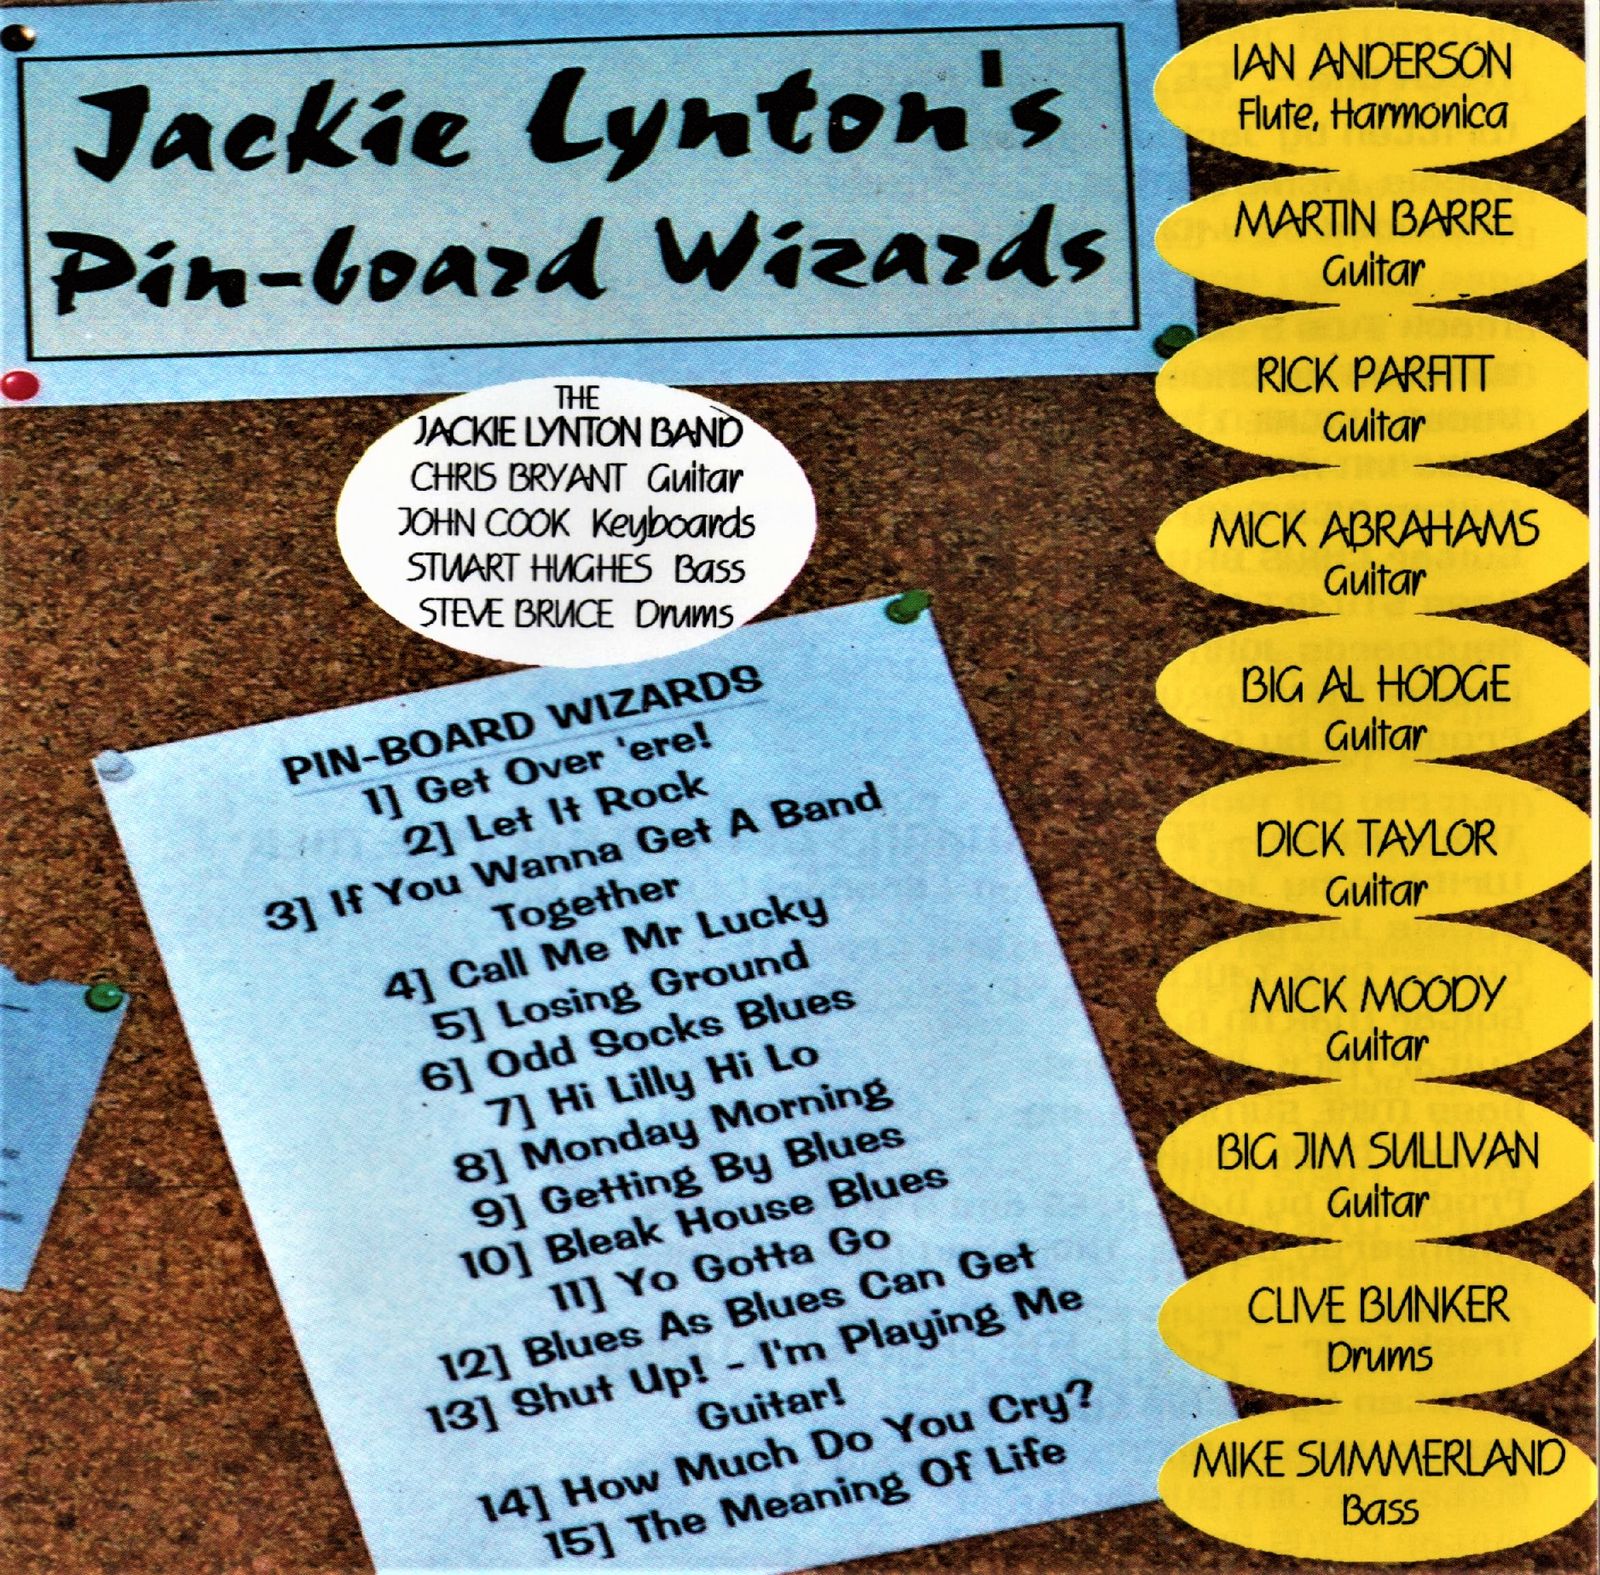 Jackie Lynton's
Pin-board Wizards
THE
JACKIE LYNTON BAND
CHRIS BRYANT Guitar
JOHN COOK Keyboards
STUART HUGHES Bass
STEVE BRUCE Drums
PIN-BOARD WIZARDS
1] Get Over 'ere!
2] Let It Rock
3] If You Wanna Get A Band
Together
4] Call Me Mr Lucky
5] Losing Ground
6] Odd Socks Blues
7] Hi Lilly Hi Lo
8] Monday Morning
9] Getting By Blues
10] Bleak House Blues
11] Yo Gotta Go
12] Blues As Blues Can Get
13] Shut Up! - I'm Playing Me
Guitar!
14] How Much Do You Cry?
15] The Meaning Of Life
IAN ANDERSON
Flute, Harmonica
MARTIN BARRE
Guitar
RICK PARFITT
Guitar
MICK ABRAHAMS
Guitar
BIG AL HODGE
Guitar
DICK TAYLOR
Guitar
MICK MOODY
Guitar
BIG JIM SULLIVAN
Guitar
CLIVE BUNKER
Drums
MIKE SUMMERLAND
Bass